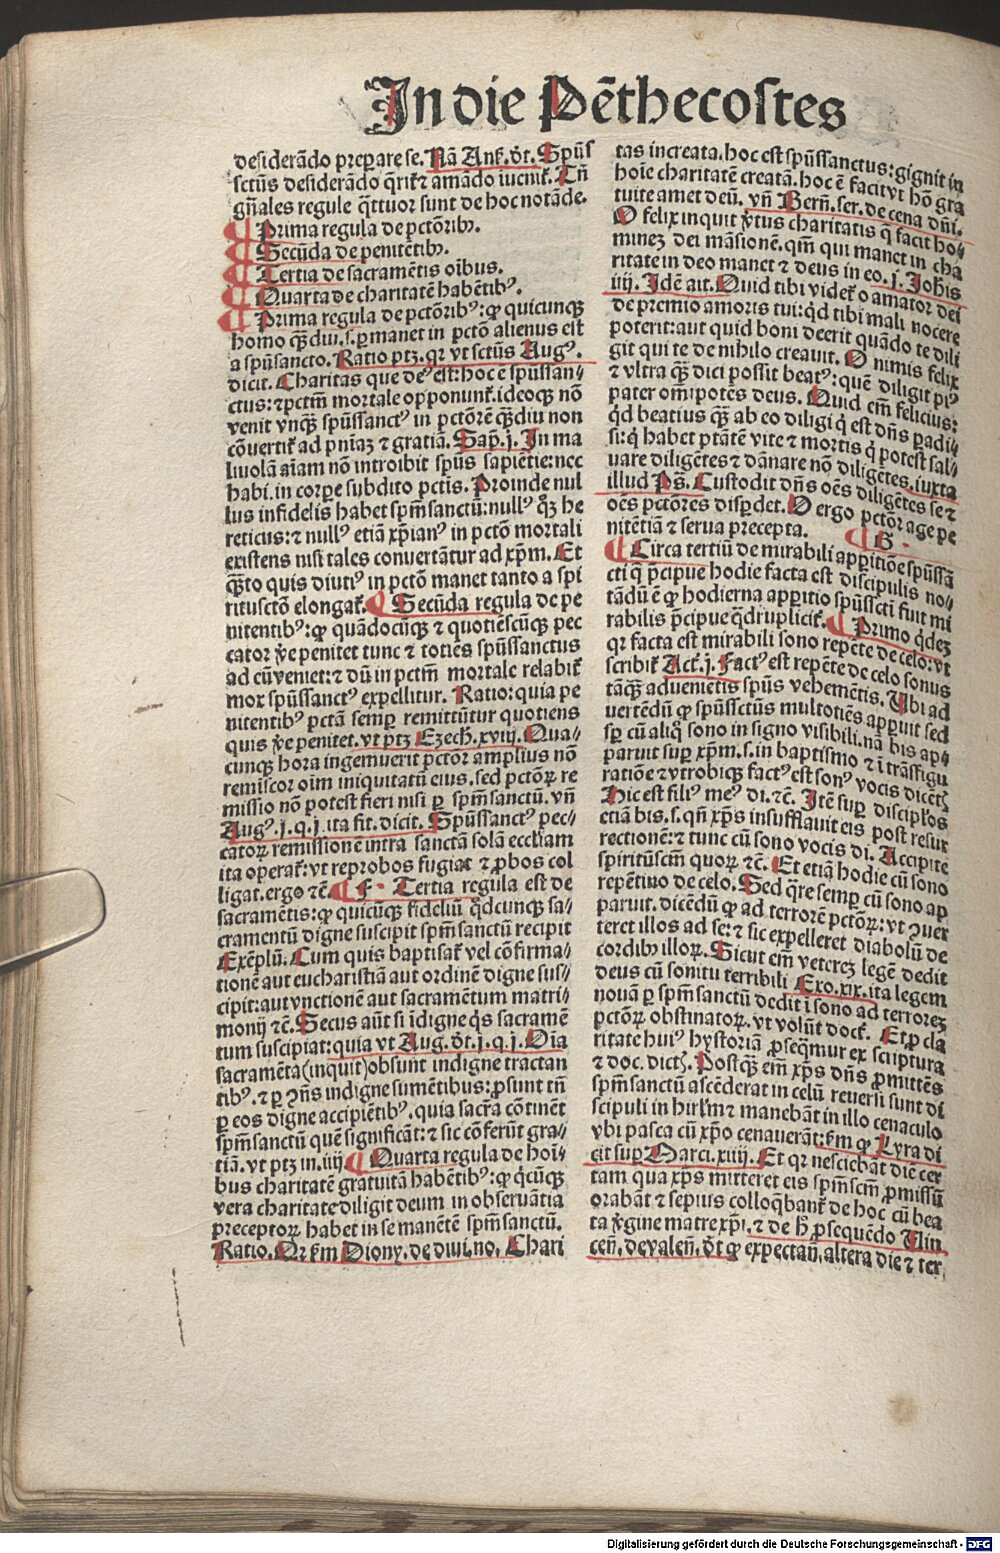 In die Pēthecostes
desiderādo preparare se. Nā Anſ. dt. Spūs
sctūs desiderādo qrit̄ ⁊ amādo iucnit̄. Tn̄
gn̄ales regule qttuor sunt de hoc notāde.
¶ Prima regula de pctōrib⁹.
¶ Secūda de penitētib⁹.
¶ Tertia de sacramētis oībus.
¶ Quarta de charitatē habētib⁹.
¶ Prima regula de pctōrib⁹: ꝙ quicunqꝫ
homo qꝫdiu .s. ꝑmanet in pctō alienus est
a spūsancto. Ratio ptꝫ. qꝛ vt sctūs Aug⁹.
dicit. Charitas que de⁹ est: hoc ē spūssan-
ctus: ⁊ pctm̄ mortale opponunt̄. ideoqꝫ nō
venit vnqꝫ spūssanct⁹ in pctōrē qꝫdiu non
cōuertit̄ ad pn̄iaꝫ ⁊ gratiā. Sap. j. In ma
liuolā aīam nō introibit spūs sapiētie: nec
habi. in corpe subdito pctīs. Proinde nul
lus infidelis habet spm̄sanctū: null⁹ qꝫ he
reticus: ⁊ null⁹ etiā xp̄ian⁹ in pctō mortali
existens nisi tales conuertātur ad xp̄m. Et
qꝫto quis diuti⁹ in pctō manet tanto a spi
ritusctō elongat̄. ¶ Secūda regula de pe
nitentib⁹: ꝙ quādocūqꝫ ⁊ quotiēscūqꝫ pec
cator v̄e penitet tunc ⁊ totiēs spūssanctus
ad eū veniet: ⁊ dū in pctm̄ mortale relabit̄
mox spūssanct⁹ expellitur. Ratio: quia pe
nitentib⁹ pctā semꝑ remittūtur quotiens
quis v̄e penitet. vt ptꝫ Ezech. xviij. Qua-
cunqꝫ hora ingemuerit pctōr amplius nō
remīscor oīm iniquitatū eius. sed pctōꝝ re
missio nō potest fieri nisi ꝑ spm̄sanctū. vn̄
Aug⁹. j. q. j. ita fit. dicit. Spūssanct⁹ pec-
catoꝝ remissionē intra sanctā solā eccl̄iam
ita operat̄: vt reprobos fugiat ⁊ ꝓbos col
ligat. ergo ⁊c̄. ¶ F · Tertia regula est de
sacramētis: ꝙ quicūqꝫ fideliū qd̄cunqꝫ sa-
cramentū digne suscipit spm̄sanctū recipit
Exēplū. Cum quis baptisat̄ vel cōfirma-
tionē aut eucharistiā aut ordinē digne sus-
cipit: aut vnctionē aut sacramētum matri-
monij ⁊c̄. Secus aūt si īdigne qs sacramē
tum suscipiat: quia vt Aug. dt. j. q. j. Oīa
sacramēta (inquit) obsunt indigne tractan
tib⁹. ⁊ ꝑ ꝯn̄s indigne sumētibus: ꝓsunt tn̄
ꝑ eos digne accipiētib⁹. quia sacr̄a cōtinēt
spm̄sanctū quē significāt: ⁊ sic cōferūt gra-
tiā. vt ptꝫ in .iiij. ¶ Quarta regula de hoī-
bus charitatē gratuitā habētib⁹: ꝙ qcūqꝫ
vera charitate diligit deum in obseruātia
preceptoꝝ habet in se manētē spm̄sanctū.
Ratio. Qꝛ fm Diony. de diui. no. Chari
tas increata. hoc est spūssanctus: gignit in
hoīe charitatē creatā. hoc ē facit vt hō gra
tuite amet deū. vn̄ Bern̄. ser. de cena dn̄i.
O felix inquit v̄tus charitatis q̄ facit ho-
mineꝫ dei māsionē. qm̄ qui manet in cha
ritate in deo manet ⁊ deus in eo. j. Johīs
iiij. Idē aūt. Quid tibi videt̄ o amator dei
de premio amoris tui: qd tibi mali nocere
poterit: aut quid boni deerit quādo te dili
git qui te de nihilo creauit. O nimis felix
⁊ vltra qꝫ dici possit beat⁹: quē diligit pi⁹
pater om̄ipotēs deus. Quid em̄ felicius:
qd beatius qꝫ ab eo diligi q̄ est dn̄s ꝑadi-
si: q̄ habet ptātē vite ⁊ mortis q̄ potest sal-
uare diligētes ⁊ dānare nō diligētes. iuxta
illud Ps. Custodit dn̄s oēs diligētes se ⁊
oēs pctōres disꝑdet. O ergo pctōr age pe
nitētiā ⁊ serua precepta. ¶ G ·
¶ Circa tertiū de mirabili appitiōe spūssā
cti q̄ p̄cipue hodie facta est discipulis no-
tādū ē ꝙ hodierna apparitio spūsscti fuit mi
rabilis p̄cipue qdruplicit̄. ¶ Primo qdeꝫ
qꝛ facta est mirabili sono repēte de celo: vt
scribit̄ Act̄. j. Fact⁹ est repēte de celo sonus
tāqꝫ aduenietis spūs vehemētis. Ubi ad
uertēdū ꝙ spūssctūs multotiēs apparuit sed
sꝑ cū aliq̄ sono in signo visibili. nā bis ap-
paruit suꝑ xp̄m. s. in baptismo ⁊ ī trāsfigu
ratiōe ⁊ vtrobiqꝫ fact⁹ est son⁹ vocis dicētꝭ
Hic est fili⁹ me⁹ di. ⁊c̄. Itē suꝑ discipl̄os
etiā bis. s. qn̄ xp̄s insufflauit eis post resur
rectionē: ⁊ tunc cū sono vocis di. Accipite
spiritūscm̄ quoꝝ ⁊c̄. Et etiā hodie cū sono
repētino de celo. Sed qre semꝑ cū sono ap
paruit. dicēdū ꝙ ad terrorē pctōꝝ: vt ꝯuer
teret illos ad se: ⁊ sic expelleret diabolū de
cordib⁹ illoꝝ. Sicut em̄ vetereꝫ legē dedit
deus cū sonitu terribili Exo. xix. ita legem
nouā ꝑ spm̄sanctū dedit ī sono ad terroreꝫ
pctōꝝ obstinatoꝝ. vt volūt doct̄. Et ꝑ cla
ritate hui⁹ hystoriā ꝓseqmur ex scriptura
⁊ doc. dictꝭ. Postqꝫ em̄ xp̄s dn̄s ꝓmittēs
spm̄sanctū ascēderat in celū reuersi sunt di
scipuli in hirlm̄ ⁊ manebāt in illo cenaculo
vbi pasca cū xp̄o cenauerāt: fm ꝙ Lyra di
cit suꝑ Marci. xiiij. Et qꝛ nescibāt diē cer
tam qua xp̄s mitteret eis spm̄scm̄ ꝓmissū
orabāt ⁊ sepius colloqbant̄ de hoc cū bea
ta v̄gine matre xp̄i. ⁊ de h̄ ꝓsequēdo Uin
cen̄. de valen̄. dt ꝙ expectan̄. altera die ⁊ ter
Digitalisierung gefördert durch die Deutsche Forschungsgemeinschaft - DFG